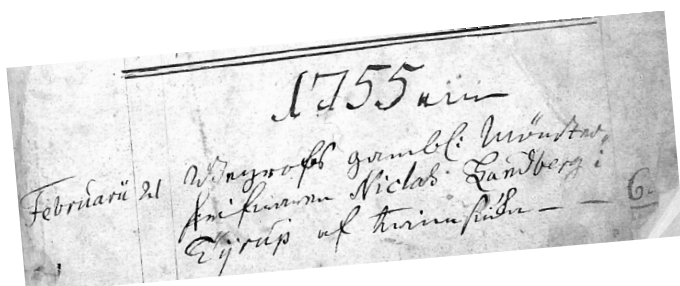 1755
Februarii 21 Begrofs gamble Mönster-
skrifvaren Niclas Landberg i
Tÿrup af 6.